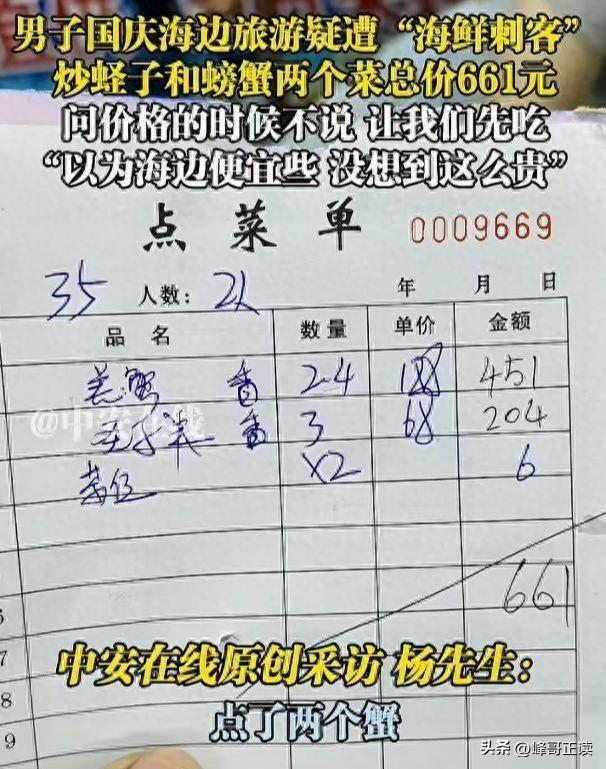 男子国庆海边旅游疑遭“海鲜刺客”
炒蛏子和螃蟹两个菜总价661元
问价格的时候不说 让我们先吃
“以为海边便宜些 没想到这么贵”
点菜单 0009669
35 人数: 2人 年 月 日
品名 数量 单价 金额
蟹 2.4 188 451
3 68 204
茶位 X2 6
661
@中安在线
7
8
9
中安在线原创采访 杨先生:
点了两个蟹
头条 @峰哥正读